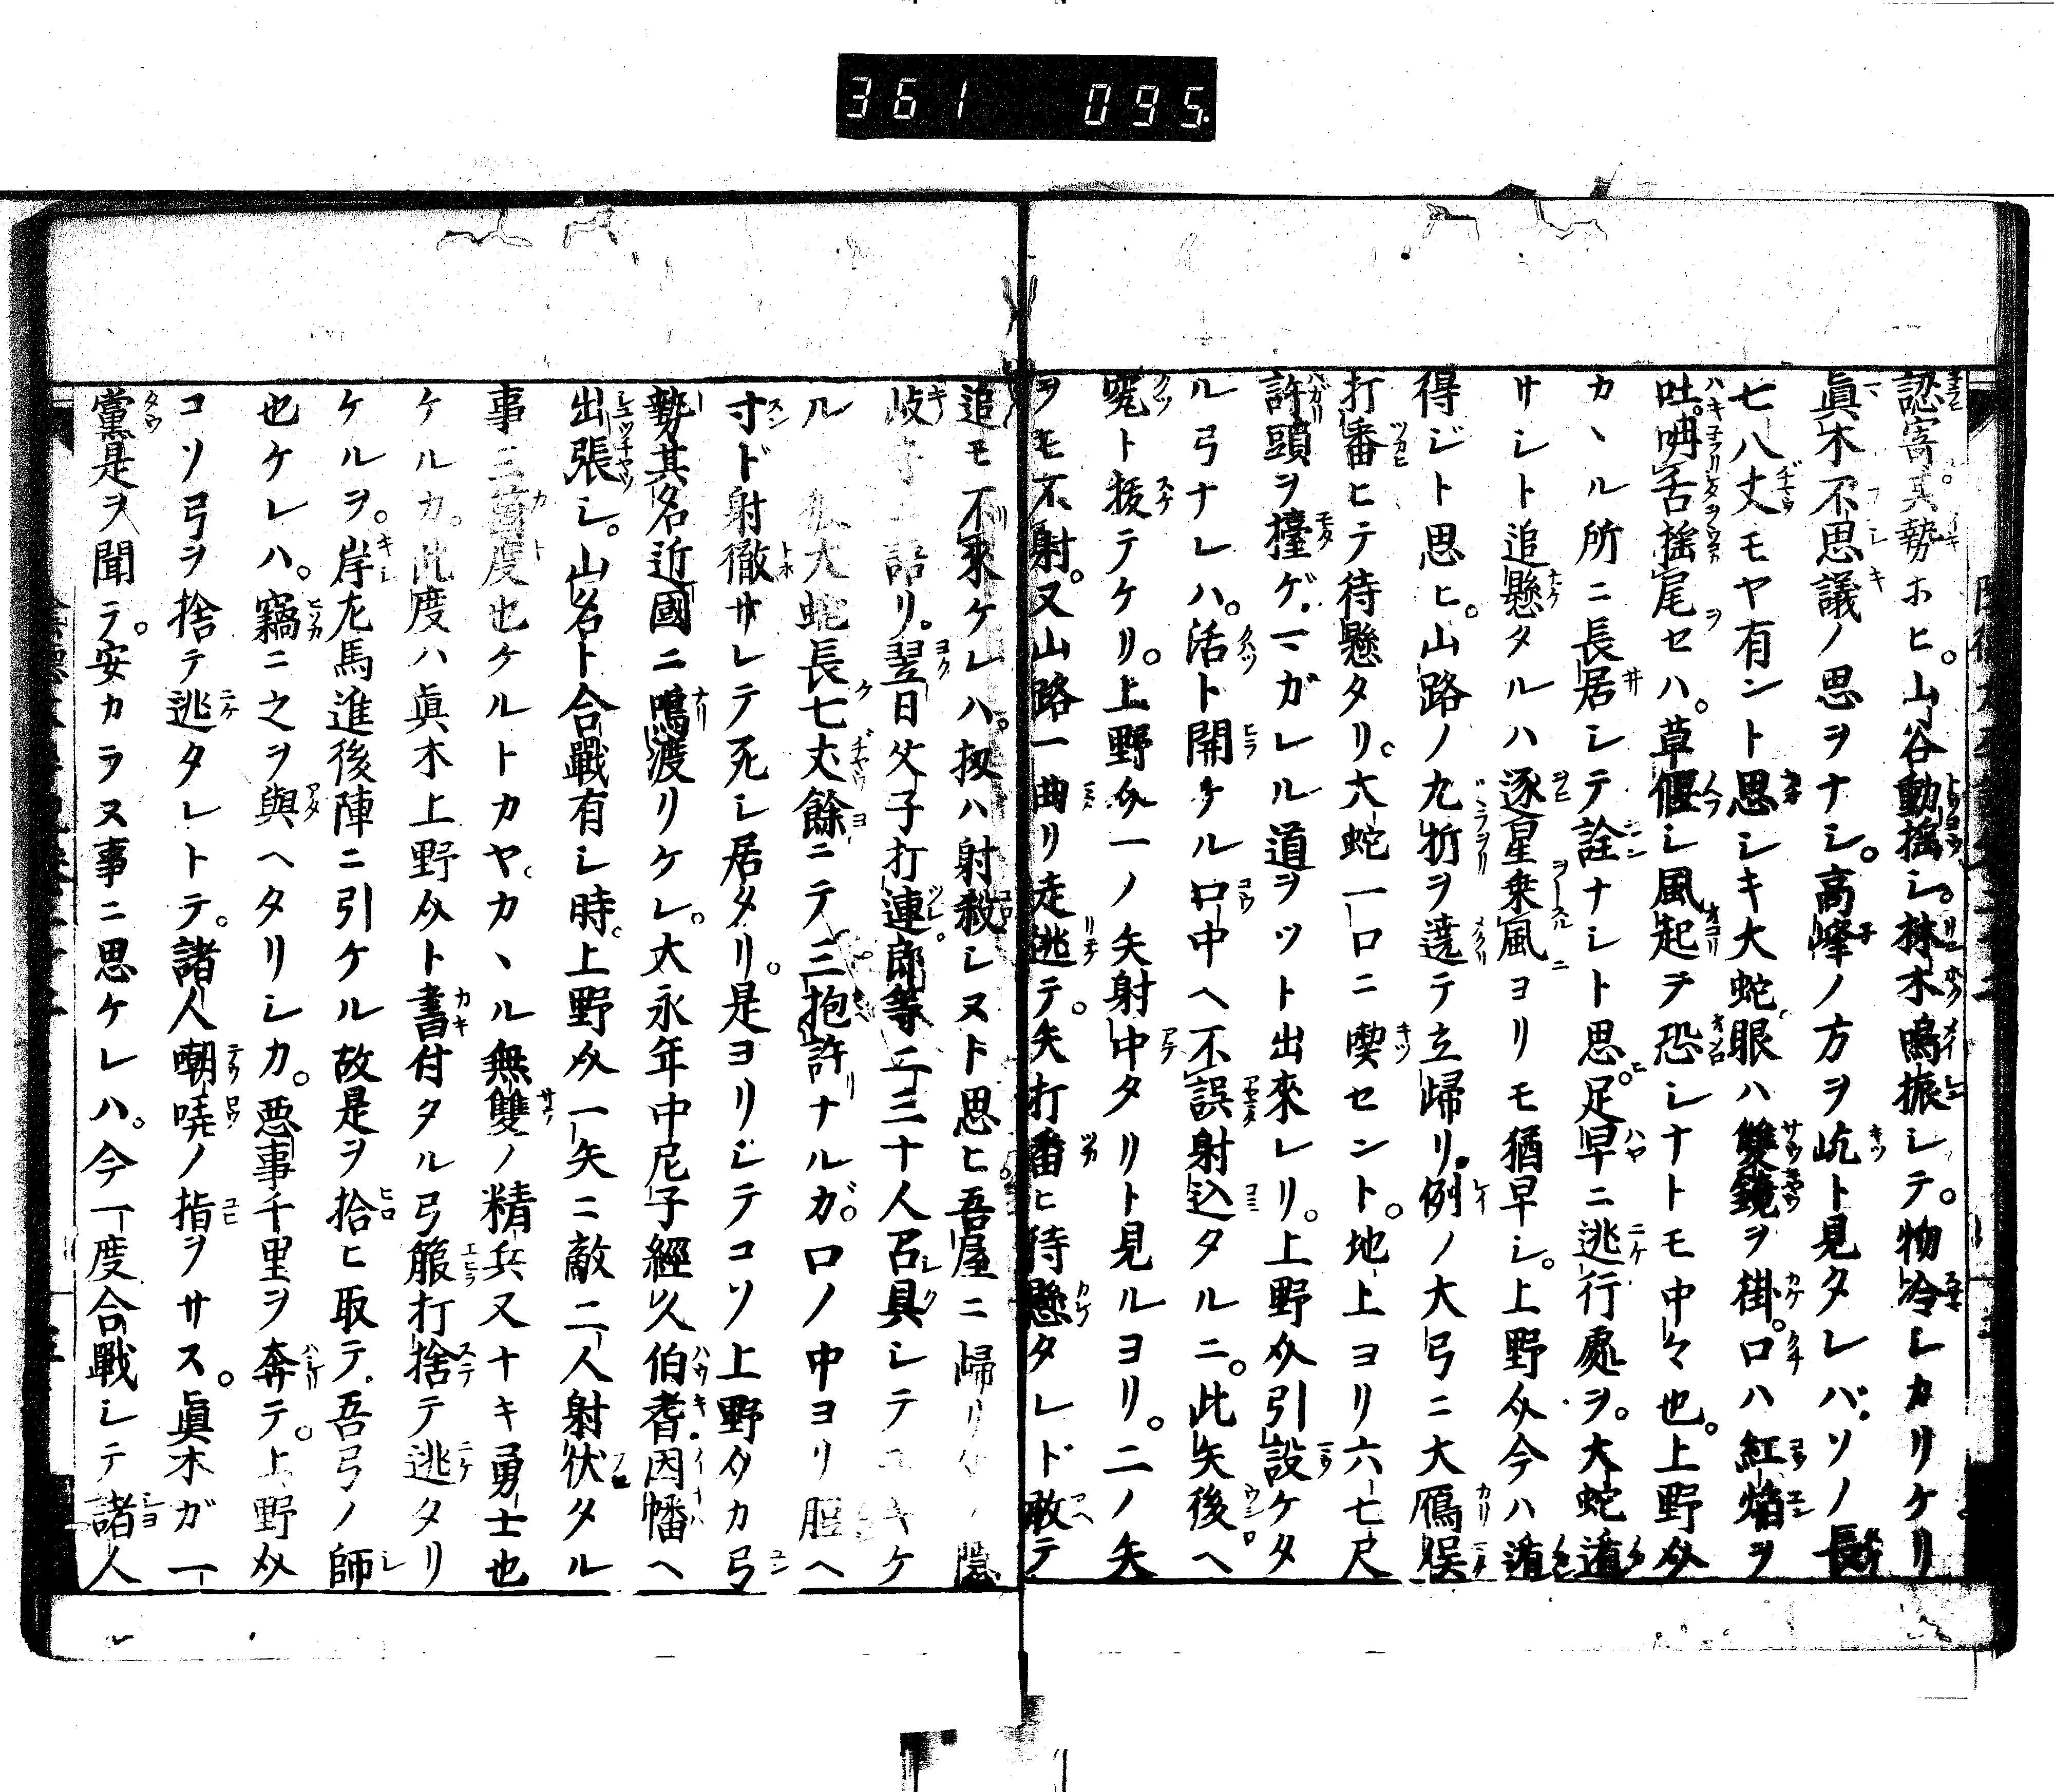 361 095
認寄其勢ホヒ。山谷動揺シ。林木鳴振シテ。物冷シカリケリ
眞木不思議ノ思ヲナシ。高峰ノ方ヲ屹ト見タレバ。ソノ長
七八丈モヤ有ント思シキ大蛇。眼ハ雙鏡ヲ掛。口ハ紅焔ヲ
吐。呥舌揺尾セハ。草偃シ風起ヲ恐シナトモ中々也。上野𠆢
カヽル所ニ長居シテ詮ナシト思。足早ニ逃行處ヲ。大蛇遁
サシト追懸タルハ逐星乗風ヨリモ猶早シ。上野𠆢今ハ遁
得ジト思ヒ。山路ノ九折ヲ遶テ立歸リ。例ノ大弓ニ大鴈俣
打番ヒテ待懸タリ。大蛇一口ニ喫セント。地上ヨリ六七尺
許頭ヲ擡ゲ。マガレル道ヲツト出來レリ。上野𠆢引設ケタ
ル弓ナレハ。活ト開ケル口中ヘ不誤射込タルニ。此矢後ヘ
ト援テケリ。上野𠆢一ノ矢射中タリト見ルヨリ。二ノ矢
ヲモ不射。又山路一曲リ走逃テ。矢打番ヒ待懸タレド敢テ
追モ不來ケレハ。扨ハ射殺シヌト思ヒ吾屋ニ歸リ
語リ。翌日父子打連。郎等二三十人召具シテユキケ
ル 大蛇長七丈餘ニテ三抱許ナルガ。口ノ中ヨリ胆ヘ
寸ド射徹サレテ死シ居タリ。是ヨリシテコソ上野𠆢カ弓
勢其名近國ニ鳴渡リケレ。大永年中尼子經久伯耆。因幡ヘ
出張シ。山名ト合戰有シ時。上野𠆢一矢ニ敵二人射伏タル
事三箇度也ケルトカヤ。カヽル無雙ノ精兵又ナキ勇士也
ケルカ。此度ハ眞木上野𠆢ト書付タル弓箙打捨テ逃タリ
ケルヲ。岸左馬進後陣ニ引ケル故是ヲ拾ヒ取テ。吾弓ノ師
也ケレハ。竊ニ之ヲ與ヘタリシカ。悪事千里ヲ奔テ。上野𠆢
コソ弓ヲ捨テ逃タレトテ。諸人嘲哢ノ指ヲサス。眞木ガ一
黨是ヲ聞テ。安カラヌ事ニ思ケレハ。今一度合戰シテ諸人